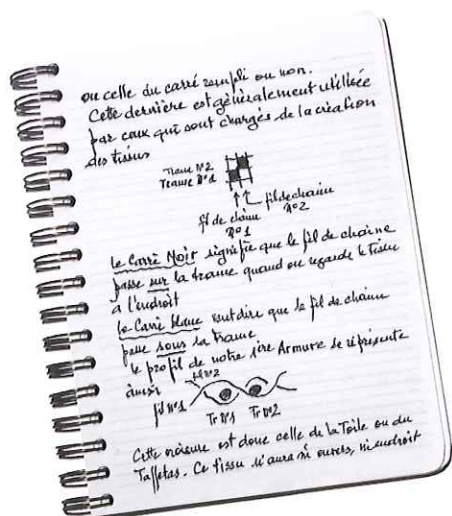 ou celle du carré rempli ou non.
Cette dernière est généralement utilisée
par ceux qui sont chargés de la création
des tissus
Trame N°2
Trame N°1
fil de chaine
N°2
fil de chaine
N°1
le Carré Noir signifie que le fil de chaine
passe sur la trame quand on regarde le tissu
a l'endroit
le Carré blanc veut dire que le fil de chaine
passe sous la trame
le profil de notre 1ère Armure se représente
ainsi
fil N°2
fil N°1
Tr N°1 Tr N°2
Cette croisure est donc celle de la Toile ou du
Taffetas. Ce tissu n'aura ni envers, ni endroit